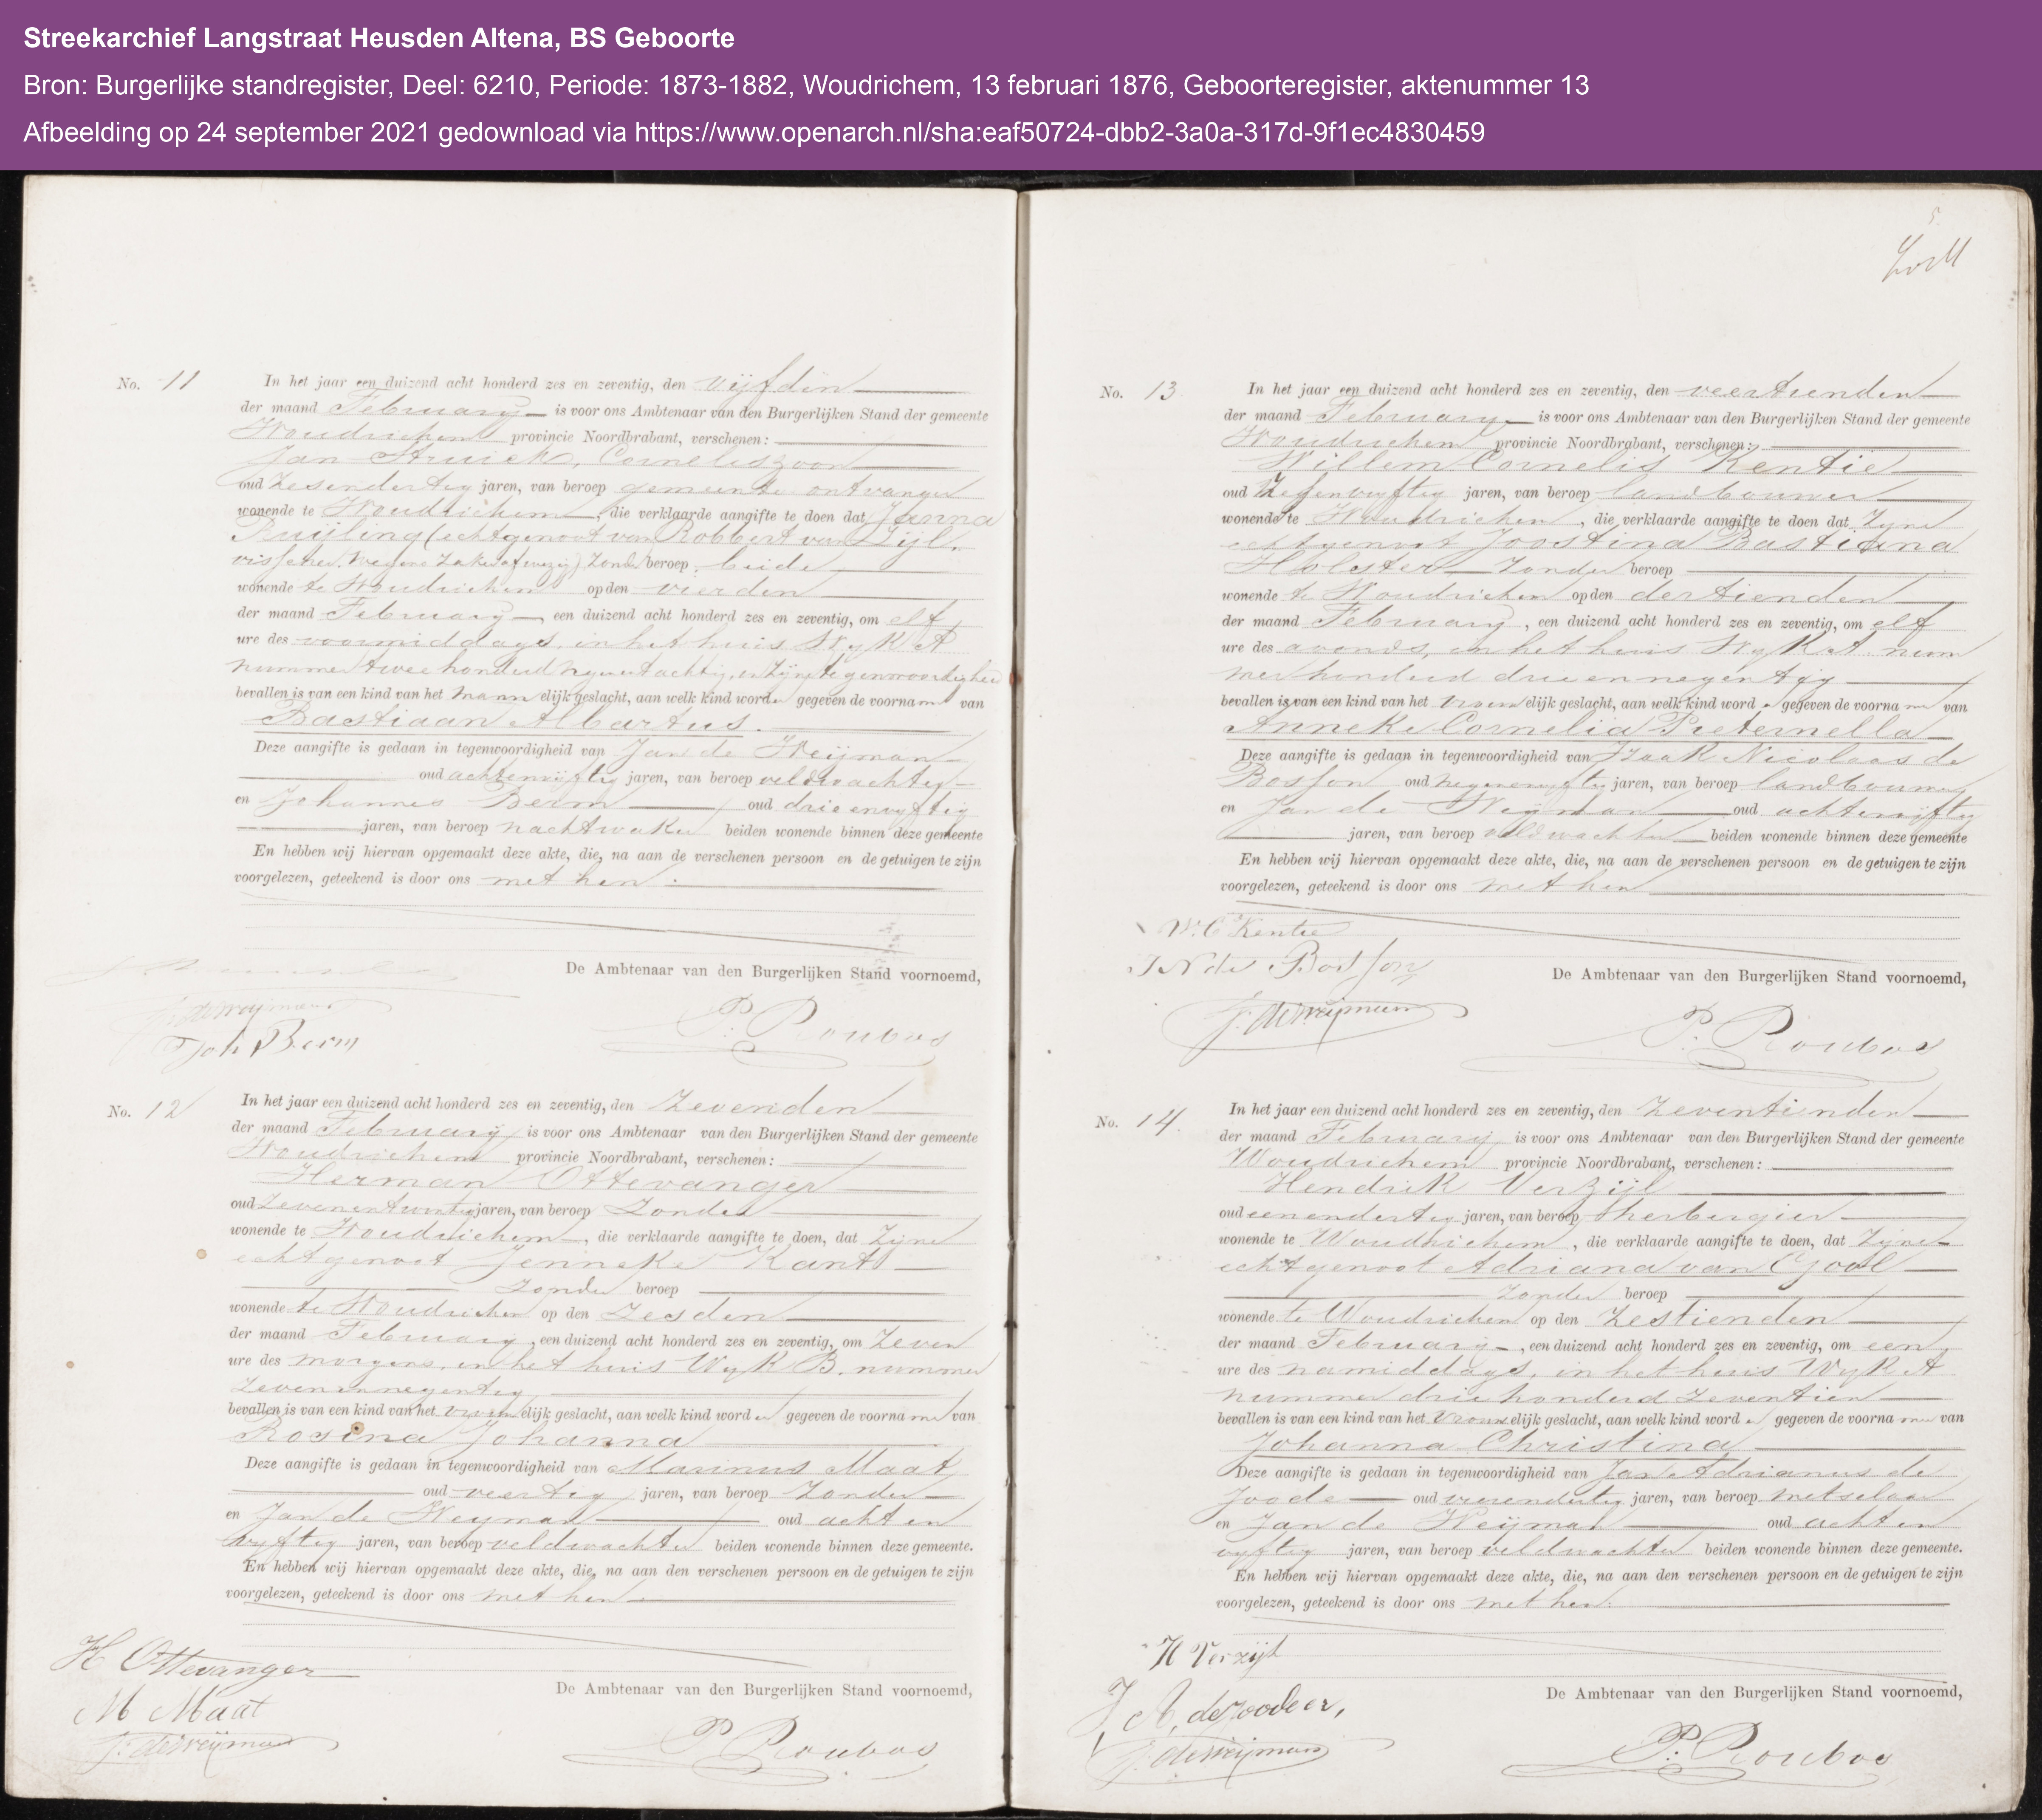 Streekarchief Langstraat Heusden Altena, BS Geboorte
Bron: Burgerlijke standregister, Deel: 6210, Periode: 1873-1882, Woudrichem, 13 februari 1876, Geboorteregister, aktenummer 13
Afbeelding op 24 september 2021 gedownload via https://www.openarch.nl/sha:eaf50724-dbb2-3a0a-317d-9f1ec4830459
No. 11 In het jaar een duizend acht honderd zes en zeventig, den vijfden
der maand February is voor ons Ambtenaar van den Burgerlijken Stand der gemeente
Woudrichem provincie Noordbrabant, verschenen:
Jan Struick, Corneliszoon
oud zesendertig jaren, van beroep gemeente ontvanger
wonende te Woudrichem, die verklaarde aangifte te doen dat Janna
Ruijling (echtgenoot van Robbert van Zijl,
visscher, wegens zaken afwezig) zonder beroep, beide
wonende te Woudrichem op den vierden
der maand February een duizend acht honderd zes en zeventig, om elf
ure des voormiddags, in het huis Wyk A
nummer twee honderd negenentachtig, in zijne tegenwoordigheid
bevallen is van een kind van het mannelijk geslacht, aan welk kind worden gegeven de voornamen van
Bastiaan Albartus.
Deze aangifte is gedaan in tegenwoordigheid van Jan de Weijman
oud achtenvijftig jaren, van beroep veldwachter
en Johannes Berm oud drieenvyftig
jaren, van beroep nachtwaker beiden wonende binnen deze gemeente
En hebben wij hiervan opgemaakt deze akte, die, na aan de verschenen persoon en de getuigen te zijn
voorgelezen, geteekend is door ons met hen.
De Ambtenaar van den Burgerlijken Stand voornoemd,
J. de Weijman
Joh Berm
P. Roubos
No. 12 In het jaar een duizend acht honderd zes en zeventig, den zevenden
der maand February is voor ons Ambtenaar van den Burgerlijken Stand der gemeente
Woudrichem provincie Noordbrabant, verschenen:
Herman Ottevanger
oud zevenentwintig jaren, van beroep zonder
wonende te Woudrichem, die verklaarde aangifte te doen, dat zijne
echtgenoot Jenneke Kant
zonder beroep
wonende te Woudrichem op den zesden
der maand February, een duizend acht honderd zes en zeventig, om zeven
ure des morgens, in het huis Wyk B. nummer
zevenennegentig
bevallen is van een kind van het vrouwelijk geslacht, aan welk kind worden gegeven de voornamen van
Rosina Johanna
Deze aangifte is gedaan in tegenwoordigheid van Marinus Maat
oud veertig jaren, van beroep zonder
en Jan de Weyman oud achten
vyftig jaren, van beroep veldwachter beiden wonende binnen deze gemeente.
En hebben wij hiervan opgemaakt deze akte, die, na aan den verschenen persoon en de getuigen te zijn
voorgelezen, geteekend is door ons met hen
H Ottevanger
De Ambtenaar van den Burgerlijken Stand voornoemd,
M Maat
J. de Weijman
P. Roubos
5
No. 13 In het jaar een duizend acht honderd zes en zeventig, den veertienden
der maand February is voor ons Ambtenaar van den Burgerlijken Stand der gemeente
Woudrichem provincie Noordbrabant, verschenen:
Willem Cornelis Kentie
oud zesenvyftig jaren, van beroep landbouwer
wonende te Woudrichem, die verklaarde aangifte te doen dat zyne
echtgenoot Joostina Bastiana
Holster zonder beroep
wonende te Woudrichem op den dertienden
der maand February, een duizend acht honderd zes en zeventig, om elf
ure des avonds, in het huis Wyk A. num
mer honderd drieennegentig
bevallen is van een kind van het vrouwelijk geslacht, aan welk kind worden gegeven de voornamen van
Anneke Cornelia Pieternella
Deze aangifte is gedaan in tegenwoordigheid van Izaak Nicolaas de
Bosson oud negenenvyftig jaren, van beroep landbouwer
en Jan de Weyman oud achtenvyftig
jaren, van beroep veldwachter beiden wonende binnen deze gemeente
En hebben wij hiervan opgemaakt deze akte, die, na aan de verschenen persoon en de getuigen te zijn
voorgelezen, geteekend is door ons met hen
W. C Kentie
De Ambtenaar van den Burgerlijken Stand voornoemd,
J. de Weijman
P. Roubos
No. 14. In het jaar een duizend acht honderd zes en zeventig, den zeventienden
der maand February is voor ons Ambtenaar van den Burgerlijken Stand der gemeente
Woudrichem provincie Noordbrabant, verschenen:
Hendrik Verzijl
oud eenendertig jaren, van beroep herbergier
wonende te Woudrichem, die verklaarde aangifte te doen, dat zyne
echtgenoot Adriana van Gool
zonder beroep
wonende te Woudrichem op den zestienden
der maand February, een duizend acht honderd zes en zeventig, om een
ure des namiddags, in het huis Wyk A
nummer drie honderd zeventien
bevallen is van een kind van het vrouwelijk geslacht, aan welk kind worden gegeven de voornamen van
Johanna Christina
Deze aangifte is gedaan in tegenwoordigheid van Jan Adrianus de
Joode oud vierendertig jaren, van beroep metselaar
en Jan de Weijman oud achten
vyftig jaren, van beroep veldwachter beiden wonende binnen deze gemeente.
En hebben wij hiervan opgemaakt deze akte, die, na aan den verschenen persoon en de getuigen te zijn
voorgelezen, geteekend is door ons met hen.
H Verzijl
De Ambtenaar van den Burgerlijken Stand voornoemd,
J. de Weijman
P. Roubos